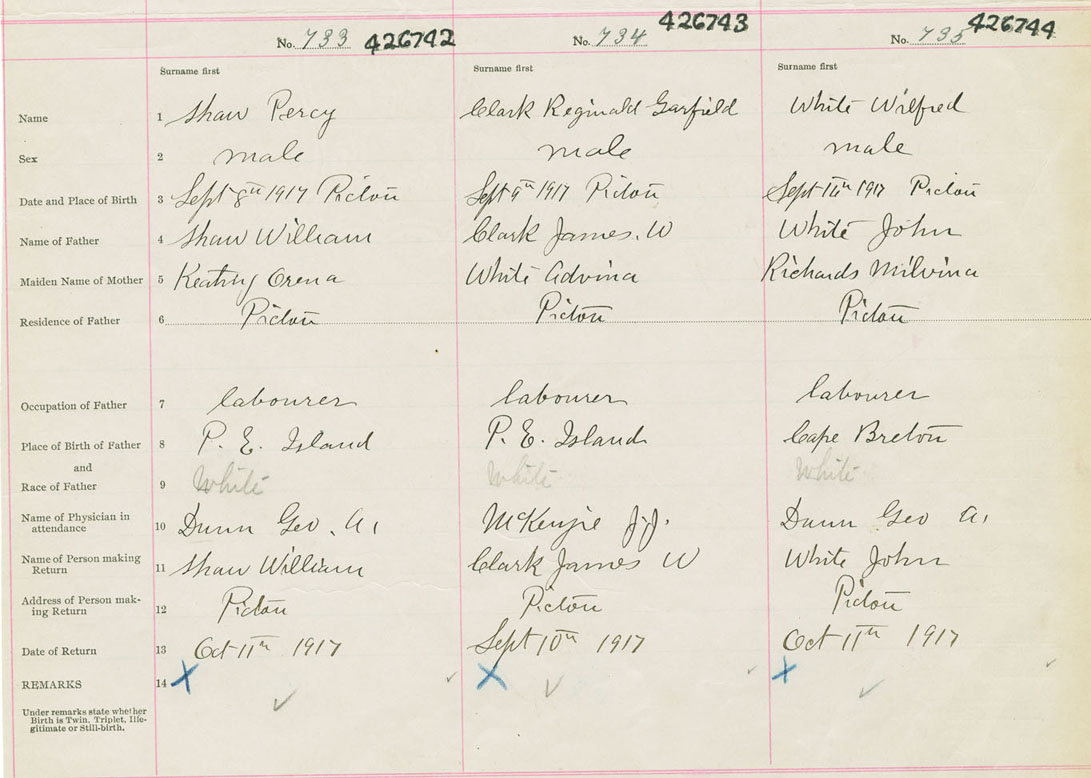 No. 733 426742 No. 734 426743 No. 735 426744
Surname first Surname first Surname first
Name 1 Shaw Percy Clark Reginald Garfield White Wilfred
Sex 2 male male male
Date and Place of Birth 3 Sept 8th 1917 Pictou Sept 9th 1917 Pictou Sept 14th 1917 Pictou
Name of Father 4 Shaw William Clark James. W White John
Maiden Name of Mother 5 Keating Orena White Advina Richards Milvina
Residence of Father 6 Pictou Pictou Pictou
Occupation of Father 7 labourer labourer labourer
Place of Birth of Father 8 P. E. Island P. E. Island Cape Breton
and
Race of Father 9 White White White
Name of Physician in
attendance 10 Dunn Geo. A. McKenzie J.J. Dunn Geo A.
Name of Person making
Return 11 Shaw William Clark James W White John
Address of Person mak-
ing Return 12 Pictou Pictou Pictou
Date of Return 13 Oct 11th 1917 Sept 10th 1917 Oct 11th 1917
REMARKS 14 X X X
Under remarks state whether
Birth is Twin, Triplet, Ille-
gitimate or Still-birth.